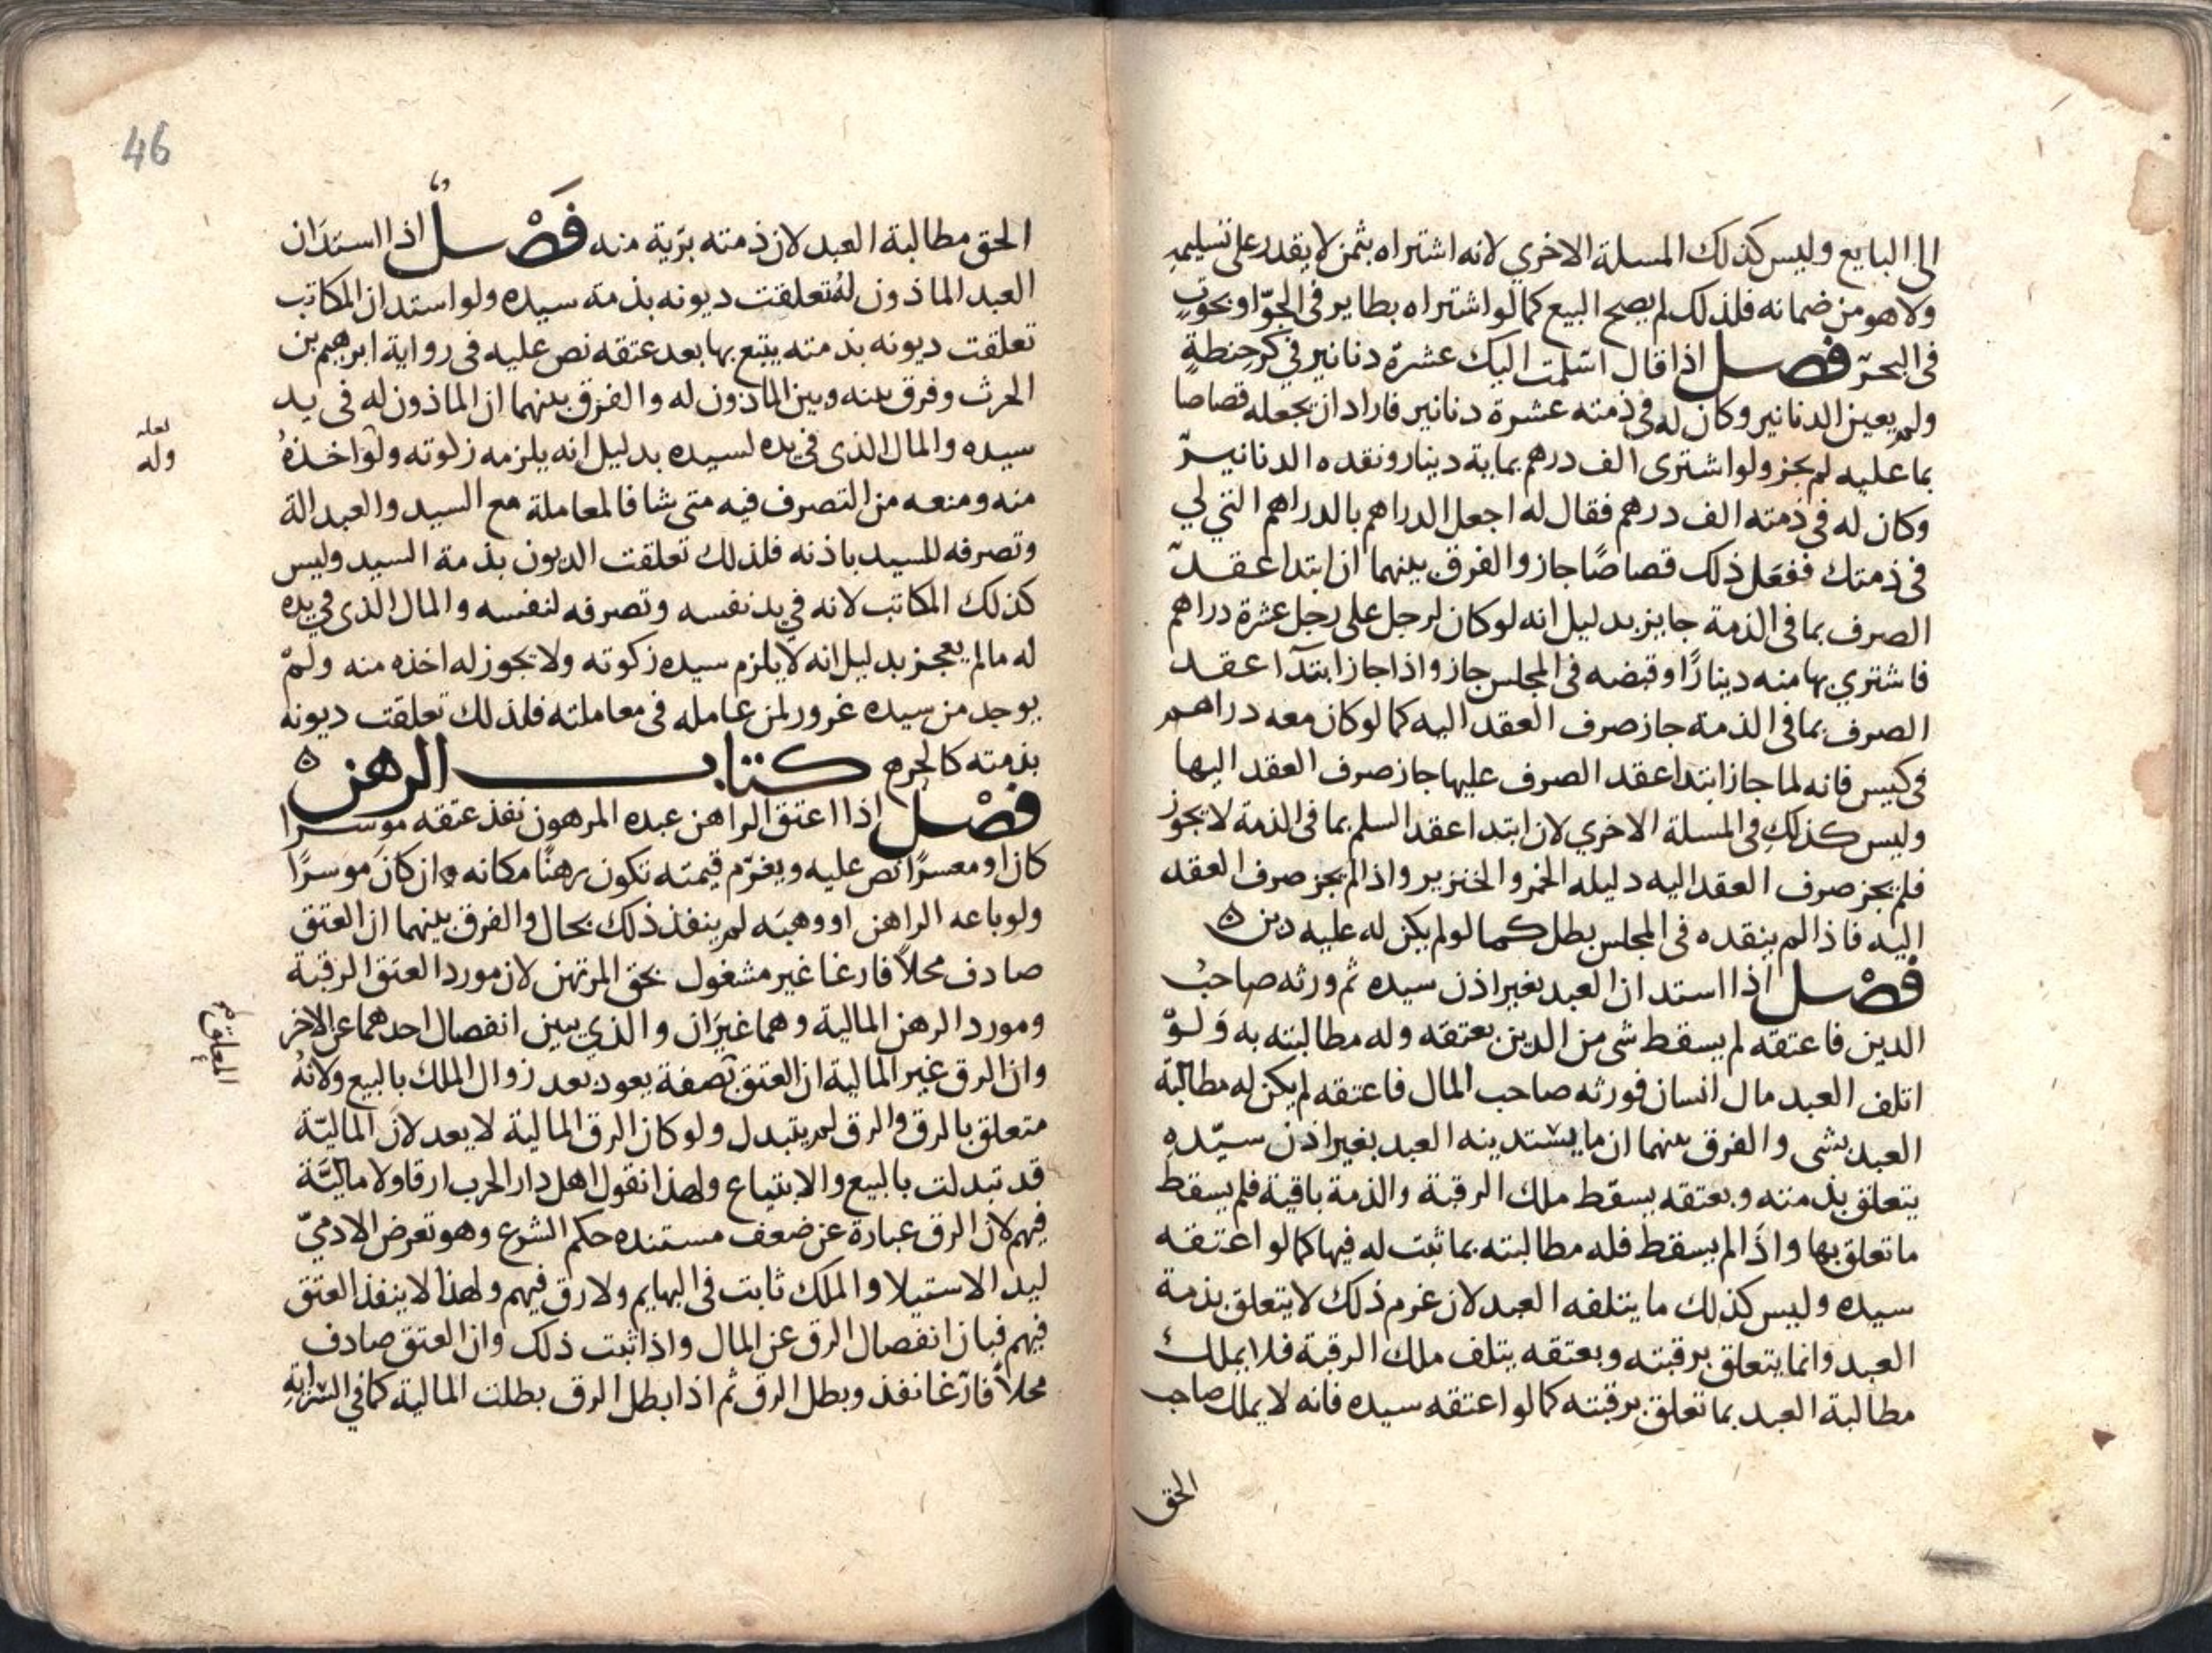 الى البايع وليس كذلك المسلة الاخري لانه اشتراه بثمن لا يقدر على تسليمه
ولا هو من ضمانه فلذلك لم يصح البيع كما لو اشتراه بطاير في الجوّ او بحوتٍ
في البحر فصل اذا قال اسلمت اليك عشرة دنانير في كر حنطةٍ
ولم يعين الدنانير وكان له في ذمته عشرة دنانير فاراد ان يجعله قصاصا
بما عليه لم يجز ولو اشترى الف درهم بماية دينار ونقده الدنانير
وكان له في ذمته الف درهم فقال له اجعل الدراهم بالدراهم التي لي
في ذمتك ففعل ذلك قصاصًا جاز والفرق بينهما ان ابتدا عقد
الصرف بما في الذمة جايز بدليل انه لو كان لرجل على رجل عشرة دراهم
فاشتري بها منه دينارًا وقبضه في المجلس جاز واذا جاز ابتدآ عقد
الصرف بما في الذمة جاز صرف العقد اليه كما لو كان معه دراهم
في كيس فانه لما جاز ابتدا عقد الصرف عليها جاز صرف العقد اليها
وليس كذلك في المسلة الاخري لان ابتدا عقد السلم بما في الذمة لا يجوز
فلم يجز صرف العقد اليه دليله الخمر والخنزير واذا لم يجز صرف العقد
اليه فاذا لم ينقده في المجلس بطل كما لو لم يكن له عليه دين ه
فصل اذا استدان العبد بغير اذن سيده ثم ورثه صاحبُ
الدين فاعتقه لم يسقط شى من الدين بعتقه وله مطالبته به ولوْ
اتلف العبد مال انسان فورثه صاحب المال فاعتقه لم يكن له مطالبة
العبد بشى والفرق بينهما ان ما يستدينه العبد بغير اذن سيّده
يتعلق بذمته وبعتقه يسقط ملك الرقبة والذمة باقية فلم يسقط
ما تعلق بها واذا لم يسقط فله مطالبته بما ثبت له فيها كما لو اعتقه
سيده وليس كذلك ما يتلفه العبد لان غرم ذلك لا يتعلق بذمة
العبد وانما يتعلق برقبته وبعتقه يتلف ملك الرقبة فلا يملك
مطالبة العبد بما تعلق برقبته كما لو اعتقه سيده فانه لا يملك صاحب
الحق
46
الحق مطالبة العبد لان ذمته برّية منه فَصْل اذا استدَان
العبد الماذون لهُ تعلقت ديونه بذمة سيده ولو استدان المكاتب
تعلقت ديونه بذمته يتبع بها بعد عتقه نص عليه في رواية ابرهيم بن
الحرث وفرق بينه وبين الماذون له والفرق بينهما ان الماذون له في يد
سيده والمال الذى في يده لسيده بدليل انه يلزمه زكوته ولو اخذهُ
لعله
وله
منه ومنعه من التصرف فيه متى شا فالمعاملة مع السيد والعبد الة
وتصرفه للسيد باذنه فلذلك تعلقت الديون بذمة السيد وليس
كذلك المكاتب لانه في يد نفسه وتصرفه لنفسه والمال الذى في يده
له ما لم يعجز بدليل انه لا يلزم سيده زكوته ولا يجوز له اخذه منه ولمْ
يوجد من سيده غرور لمن عامله في معاملته فلذلك تعلقت ديونه
بذمته كالحر ه كتاب الرهن ه
فصْل اذا اعتق الراهن عبده المرهون نفذ عتقه موسرا
كان او معسرًا نص عليه ويغرّم قيمته تكون رهنًا مكانه ان كان موسرًا
ولو باعه الراهن او وهبَه لم ينفذ ذلك بحال والفرق بينهما ان العتق
صادف محلاً فارغا غير مشغول بحق المرتهن لان مورد العتق الرقبة
ومورد الرهن المالية وهما غيرَان والذي يبين انفصال احدهما عن الاخر
وان الرق غير المالية ان العتق بصفة يعود بعد زوال الملك بالبيع ولانهُ
متعلق بالرق والرق لم يتبدل ولو كان الرق المالية لا يعد لانَ الماليّة
قد تبدلت بالبيع والابتياع ولهذا نقول اهل دار الحرب ارقا ولا ماليّة
فيهم لان الرق عبارة عن ضعف مستنده حكم الشرع وهو تعرض الادميّ
ليد الاستيلا والملك ثابت في البهايم ولا رق فيهم ولهذا لا ينفذ العتق
فيهم فبان انفصال الرق عن المال واذا ثبت ذلك وان العتق صادف
محلاً فارغا نفذ وبطل الرق ثم اذا بطل الرق بطلت المالية كما في السّراية
المعلق